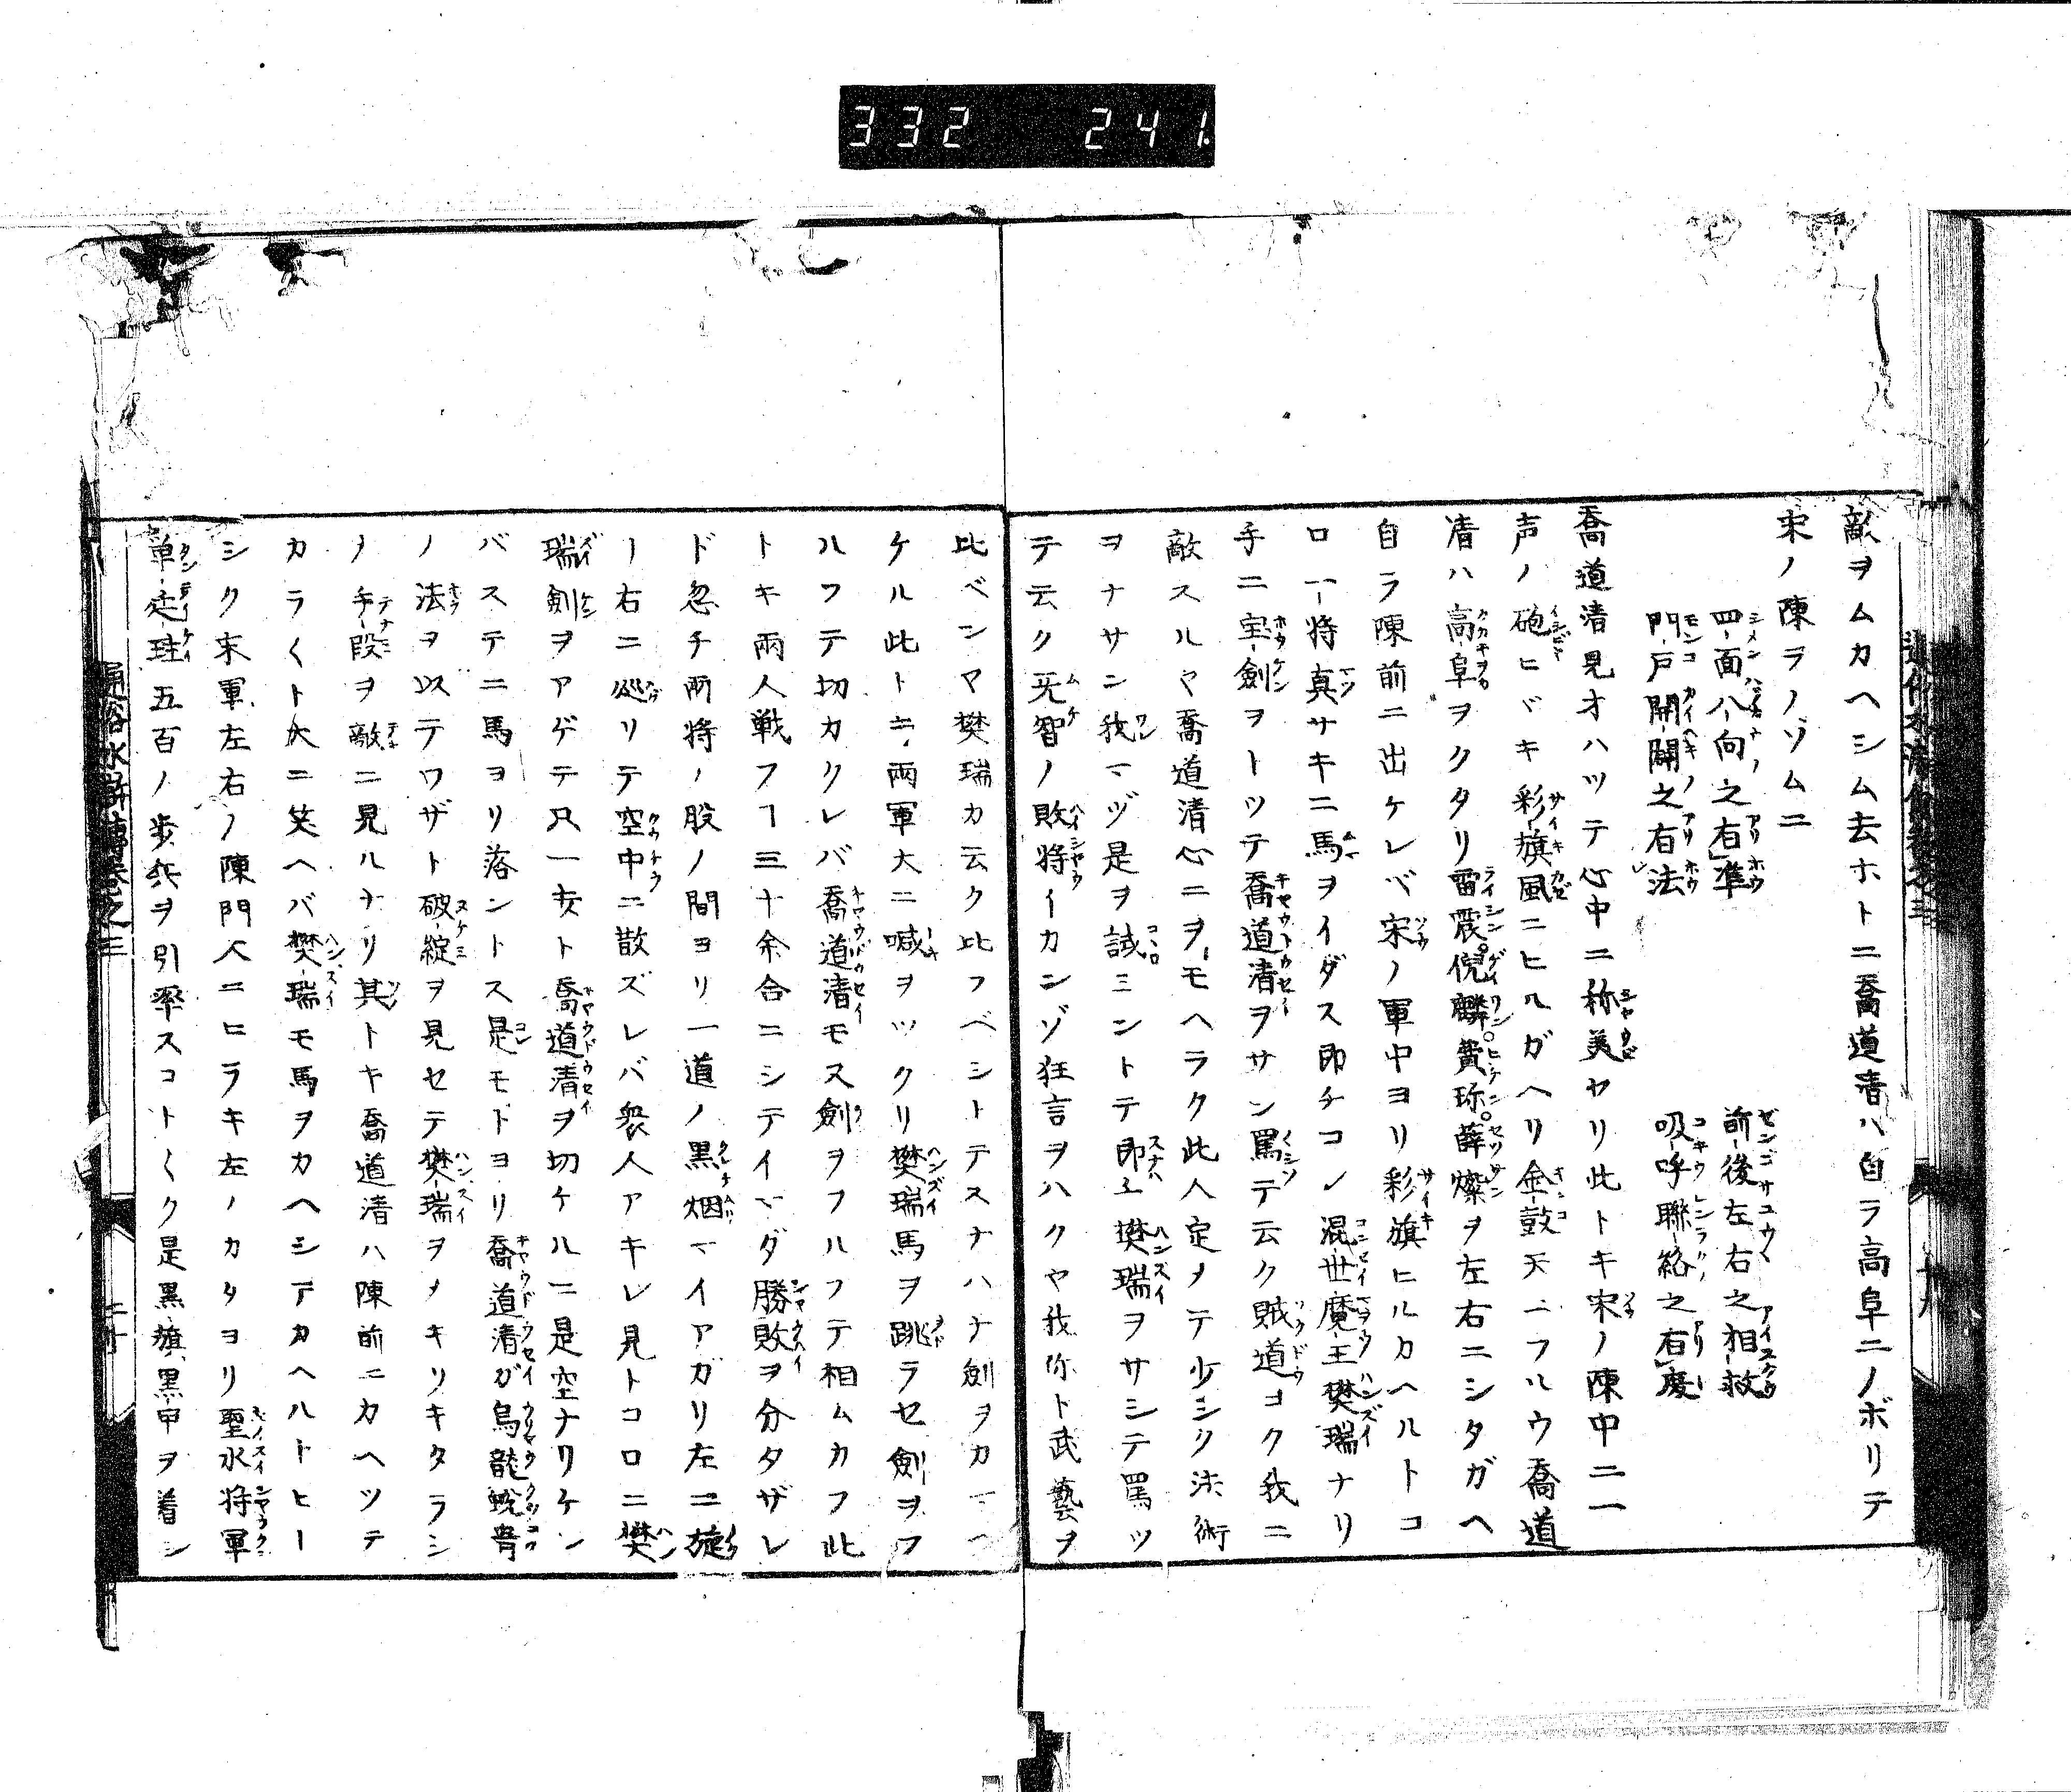 332 241
敵ヲムカヘシム去ホトニ喬道清ハ自ラ高阜ニノボリテ
宋ノ陳ラノゾムニ
四面八向之有準 前後左右之相救
門戸開闢之有法 吸呼聯絡之有度
喬道清見オハツテ心中ニ称美ヤリ此トキ宋ノ陳中ニ一
声ノ砲ヒヾキ彩旗風ニヒルガヘリ金鼓天ニフルウ喬道
清ハ高阜ヲクタリ雷震。倪麟。費珍。薛燦ヲ左右ニシタガヘ
自ラ陳前ニ出ケレバ宋ノ軍中ヨリ彩旗ヒルカヘルトコ
ロ一将真サキニ馬ヲイダス即チコレ混世魔王樊瑞ナリ
手ニ宝劍ヲトツテ喬道清ヲサシ罵テ云ク賊道ヨク我ニ
敵スルヤ喬道清心ニヲモヘラク此人定メテ少シク法術
ヲナサン我マヅ是ヲ試ミントテ即チ樊瑞ヲサシテ罵ツ
テ云ク无智ノ敗将イカンゾ狂言ヲハクヤ我你ト武藝ヲ
比ベンマ樊瑞カ云ク比フベシトテスナハチ劍ヲカマヘ
ケル此トキ両軍大ニ喊ヲツクリ樊瑞馬ヲ跳ラセ劍ヲフ
ルフテ切カクレバ喬道清モ又劍ヲフルフテ相ムカフ此
トキ兩人戦フヿ三十余合ニシテイマダ勝敗ヲ分タザレ
ド忽チ両将ノ股ノ間ヨリ一道ノ黒烟マイアガリ左ニ旋
ー右ニ巡リテ空中ニ散ズレバ衆人アキレ見トコロニ樊
瑞劍ヲアゲテ只一刀ト喬道清ヲ切ケルニ是空ナリケレ
バステニ馬ヨリ落ントス是モトヨリ喬道清ガ烏龍蛻骨
ノ法ヲ以テワザト破綻ヲ見セテ樊瑞ヲメキリキタラシ
メ手段ヲ敵ニ見ルナリ其トキ喬道清ハ陳前ニカヘツテ
カラ〱ト大ニ笑ヘバ樊瑞モ馬ヲカヘシテカヘルトヒー
シク宋軍左右ノ陳門人ニヒラキ左ノカタヨリ聖水将軍
単廷珪五百ノ歩兵ヲ引率スコト〱ク是黒旗黒甲ヲ着シ
通俗水滸傳巻之三 二十